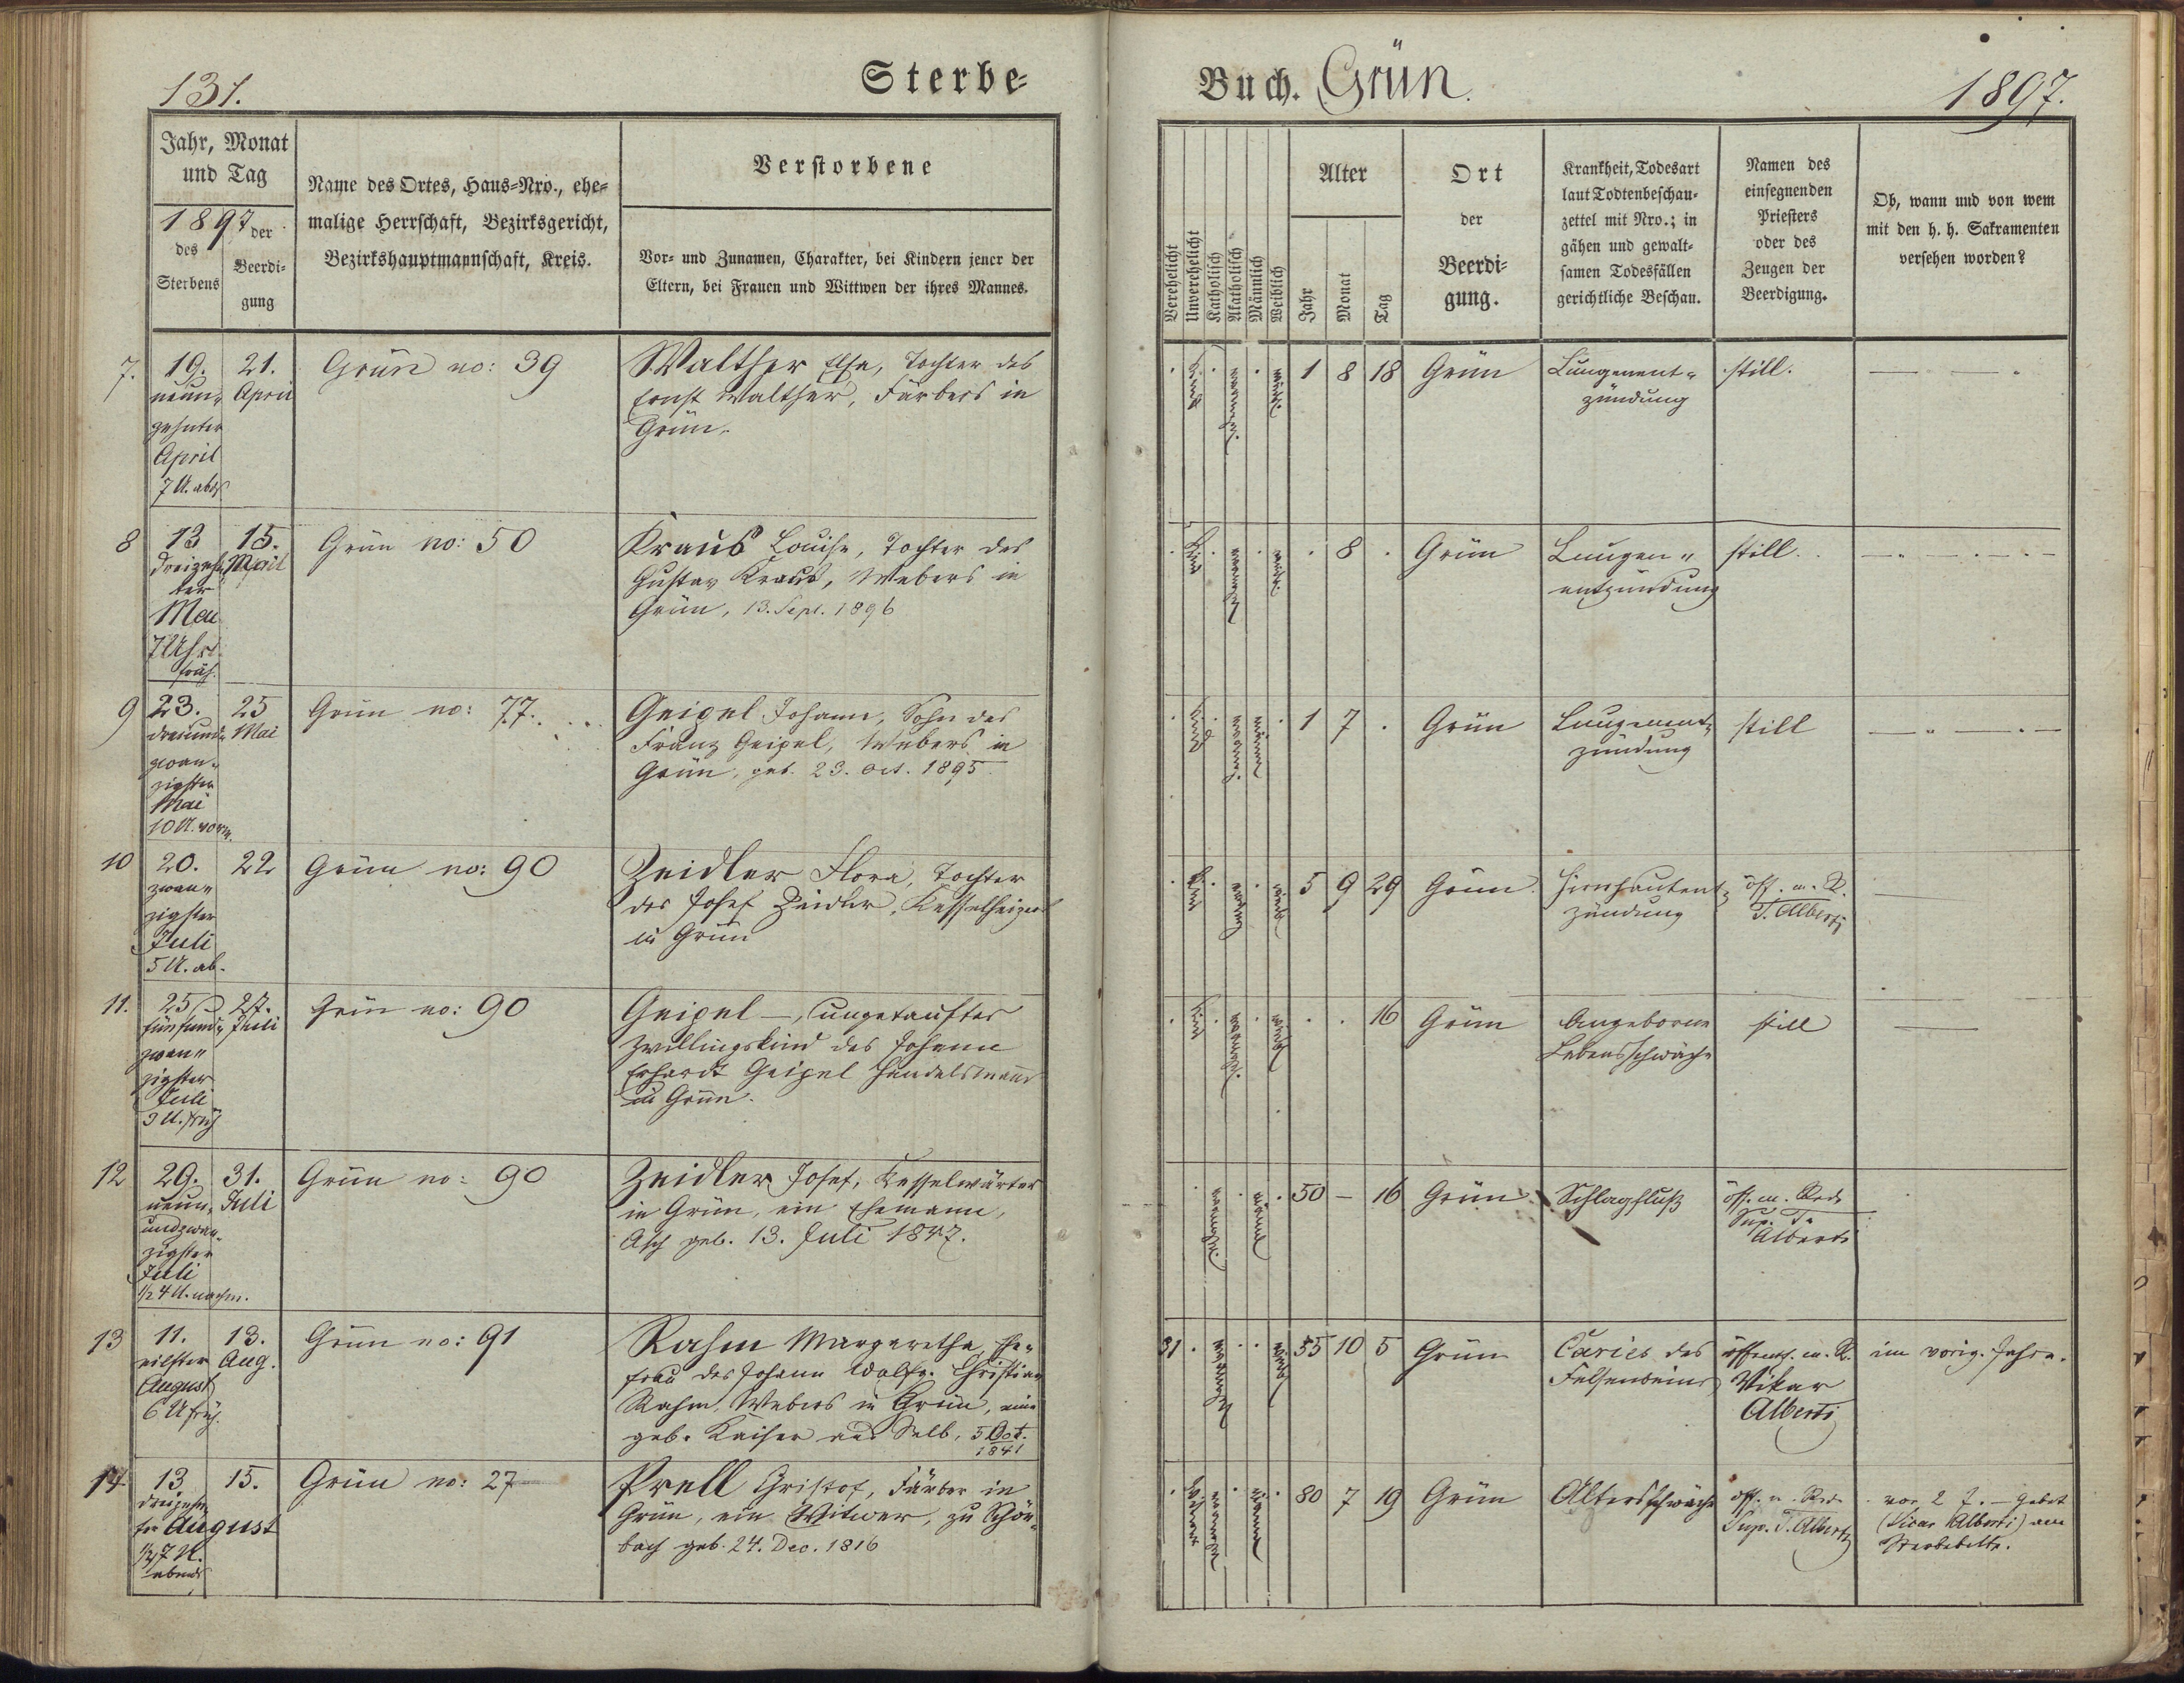 131.
Sterbe-
Buch. Grün.
1897.
Jahr, Monat
und Tag
1897
des
Sterbens
der
Beerdi-
gung
Name des Ortes, Haus-Nro., ehe-
malige Herrschaft, Bezirksgericht,
Bezirkshauptmannschaft, Kreis.
Verstorbene
Vor- und Zunamen, Charakter, bei Kindern jener der
Eltern, bei Frauen und Wittwen der ihres Mannes.
Verehelicht
Unverehelicht
Katholisch
Akatholisch
Männlich
Weiblich
Alter
Jahr
Monat
Tag
Ort
der
Beerdi-
gung.
Krankheit, Todesart
laut Todtenbeschau-
zettel mit Nro.; in
gähen und gewalt-
samen Todesfällen
gerichtliche Beschau.
Namen des
einsegnenden
Priesters
oder des
Zeugen der
Beerdigung.
Ob, wann und von wem
mit den h. h. Sakramenten
versehen worden?
7.
19.
neun-
zehnter
April
7 U. abds
21.
April
Grün no: 39
Walther Elsa, Tochter des
Ernst Walther, Färbers in
Grün.
Kind
weibl.
1 8 18
Grün
Lungenent-
zündung
still.
8
13
Dreizehn
ter
Mai
7 Uhr
früh.
15.
Mai
Grün no: 50
Kraus Louise, Tochter des
Gustav Kraus, Webers in
Grün, 13. Sept. 1896
Kind
weibl.
8
Grün
Lungen-
entzündung
still.
9
23.
dreiund-
zwan-
zigster
Mai
10 U. vorm.
25
Mai
Grün no: 77.
Geipel Johann, Sohn des
Franz Geipel, Webers in
Grün, geb. 23. Oct. 1895.
Kind
männl
1 7
Grün
Lungenent-
zündung
still
10
20.
zwan-
zigster
Juli
5 U. ab.
22
Grün no: 90
Zeidler Flora, Tochter
des Josef Zeidler, Kesselheizers
in Grün
Kind
weibl
5 9 29
Grün.
Hirnhautent-
zündung
öff. m. R.
T. Alberti
11.
25
fünfund-
zwan-
zigster
Juli
3 U. früh
27.
Juli
Grün no: 90
Geipel —, ungetauftes
Zwillingskind des Johann
Erhardt Geipel Handelsmann
in Grün.
Kind
16
Grün
Angeborne
Lebensschwäche
still
12
29.
neun-
undzwan-
zigster
Juli
1/2 4 U. nachm.
31.
Juli
Grün no: 90
Zeidler Josef, Kesselwärter
in Grün, ein Ehemann,
Asch geb. 13. Juli 1847.
männl
50 — 16
Grün
Schlagfluß
öff. m. Rede
Sup. T.
Alberti
13
11.
eilfter
August
6 U früh.
13.
Aug.
Grün no: 91
Rahm Margaretha, Ehe-
frau des Johann Wolfg. Christian
Rahm, Webers in Grün, eine
geb. Kaiser aus Selb, 5 Oct.
1841
31
weibl
55 10 5
Grün
Caries des
Felsenbeins
öffentl. m. R.
Vikar
Alberti
im vorig. Jahre.
14
13
dreizehn
ter August
1/2 7 U.
abends
15.
Grün no: 27
Prell Christof, Färber in
Grün, ein Witwer, zu Schön-
bach geb. 24. Dec. 1816
Witwer
männl
80 7 19
Grün
Altersschwäche
öff. m. Rede
Sup. T. Alberti
vor 2 J. — Gebet
(Vicar Alberti) am
Sterbebette.